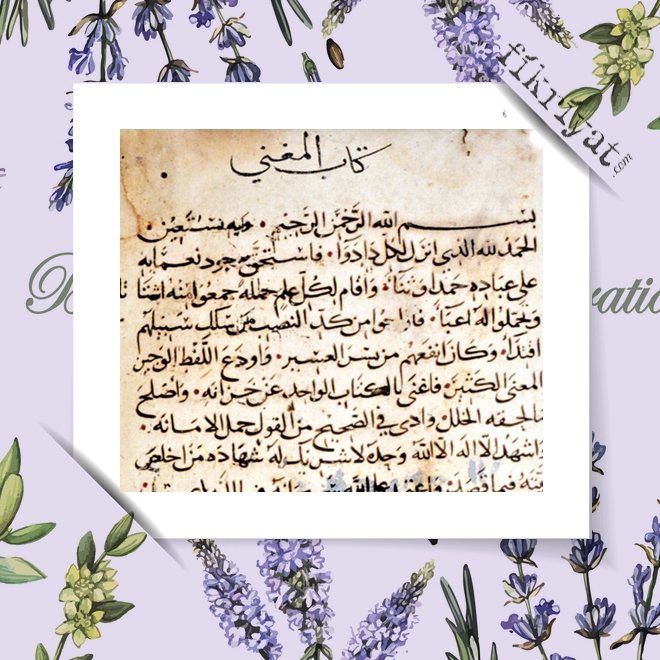 fikriyat.com
كتاب المغني
بسم الله الرحمن الرحيم وبه نستعين
الحمد لله الذي انزل لكل دا دوا فاستحق بجود نعمايه
على عباده حمدا وثنا واقام لكل علم حمله جمعوا منه
وتحملوا له اعبا فازاحوا من كد النصب من سلك سبيلهم
اقتدا وكان انفعهم من يسر العسير واودع اللفظ الوجيز
المعنى الكثير فاغنى بالكتاب الواحد عن خزانه واصلح
الخلل وادى في الصحيح من القول حمل الامانه
واشهد الا اله الا الله وحده لا شريك له شهادة من اخلص
فيما قصد